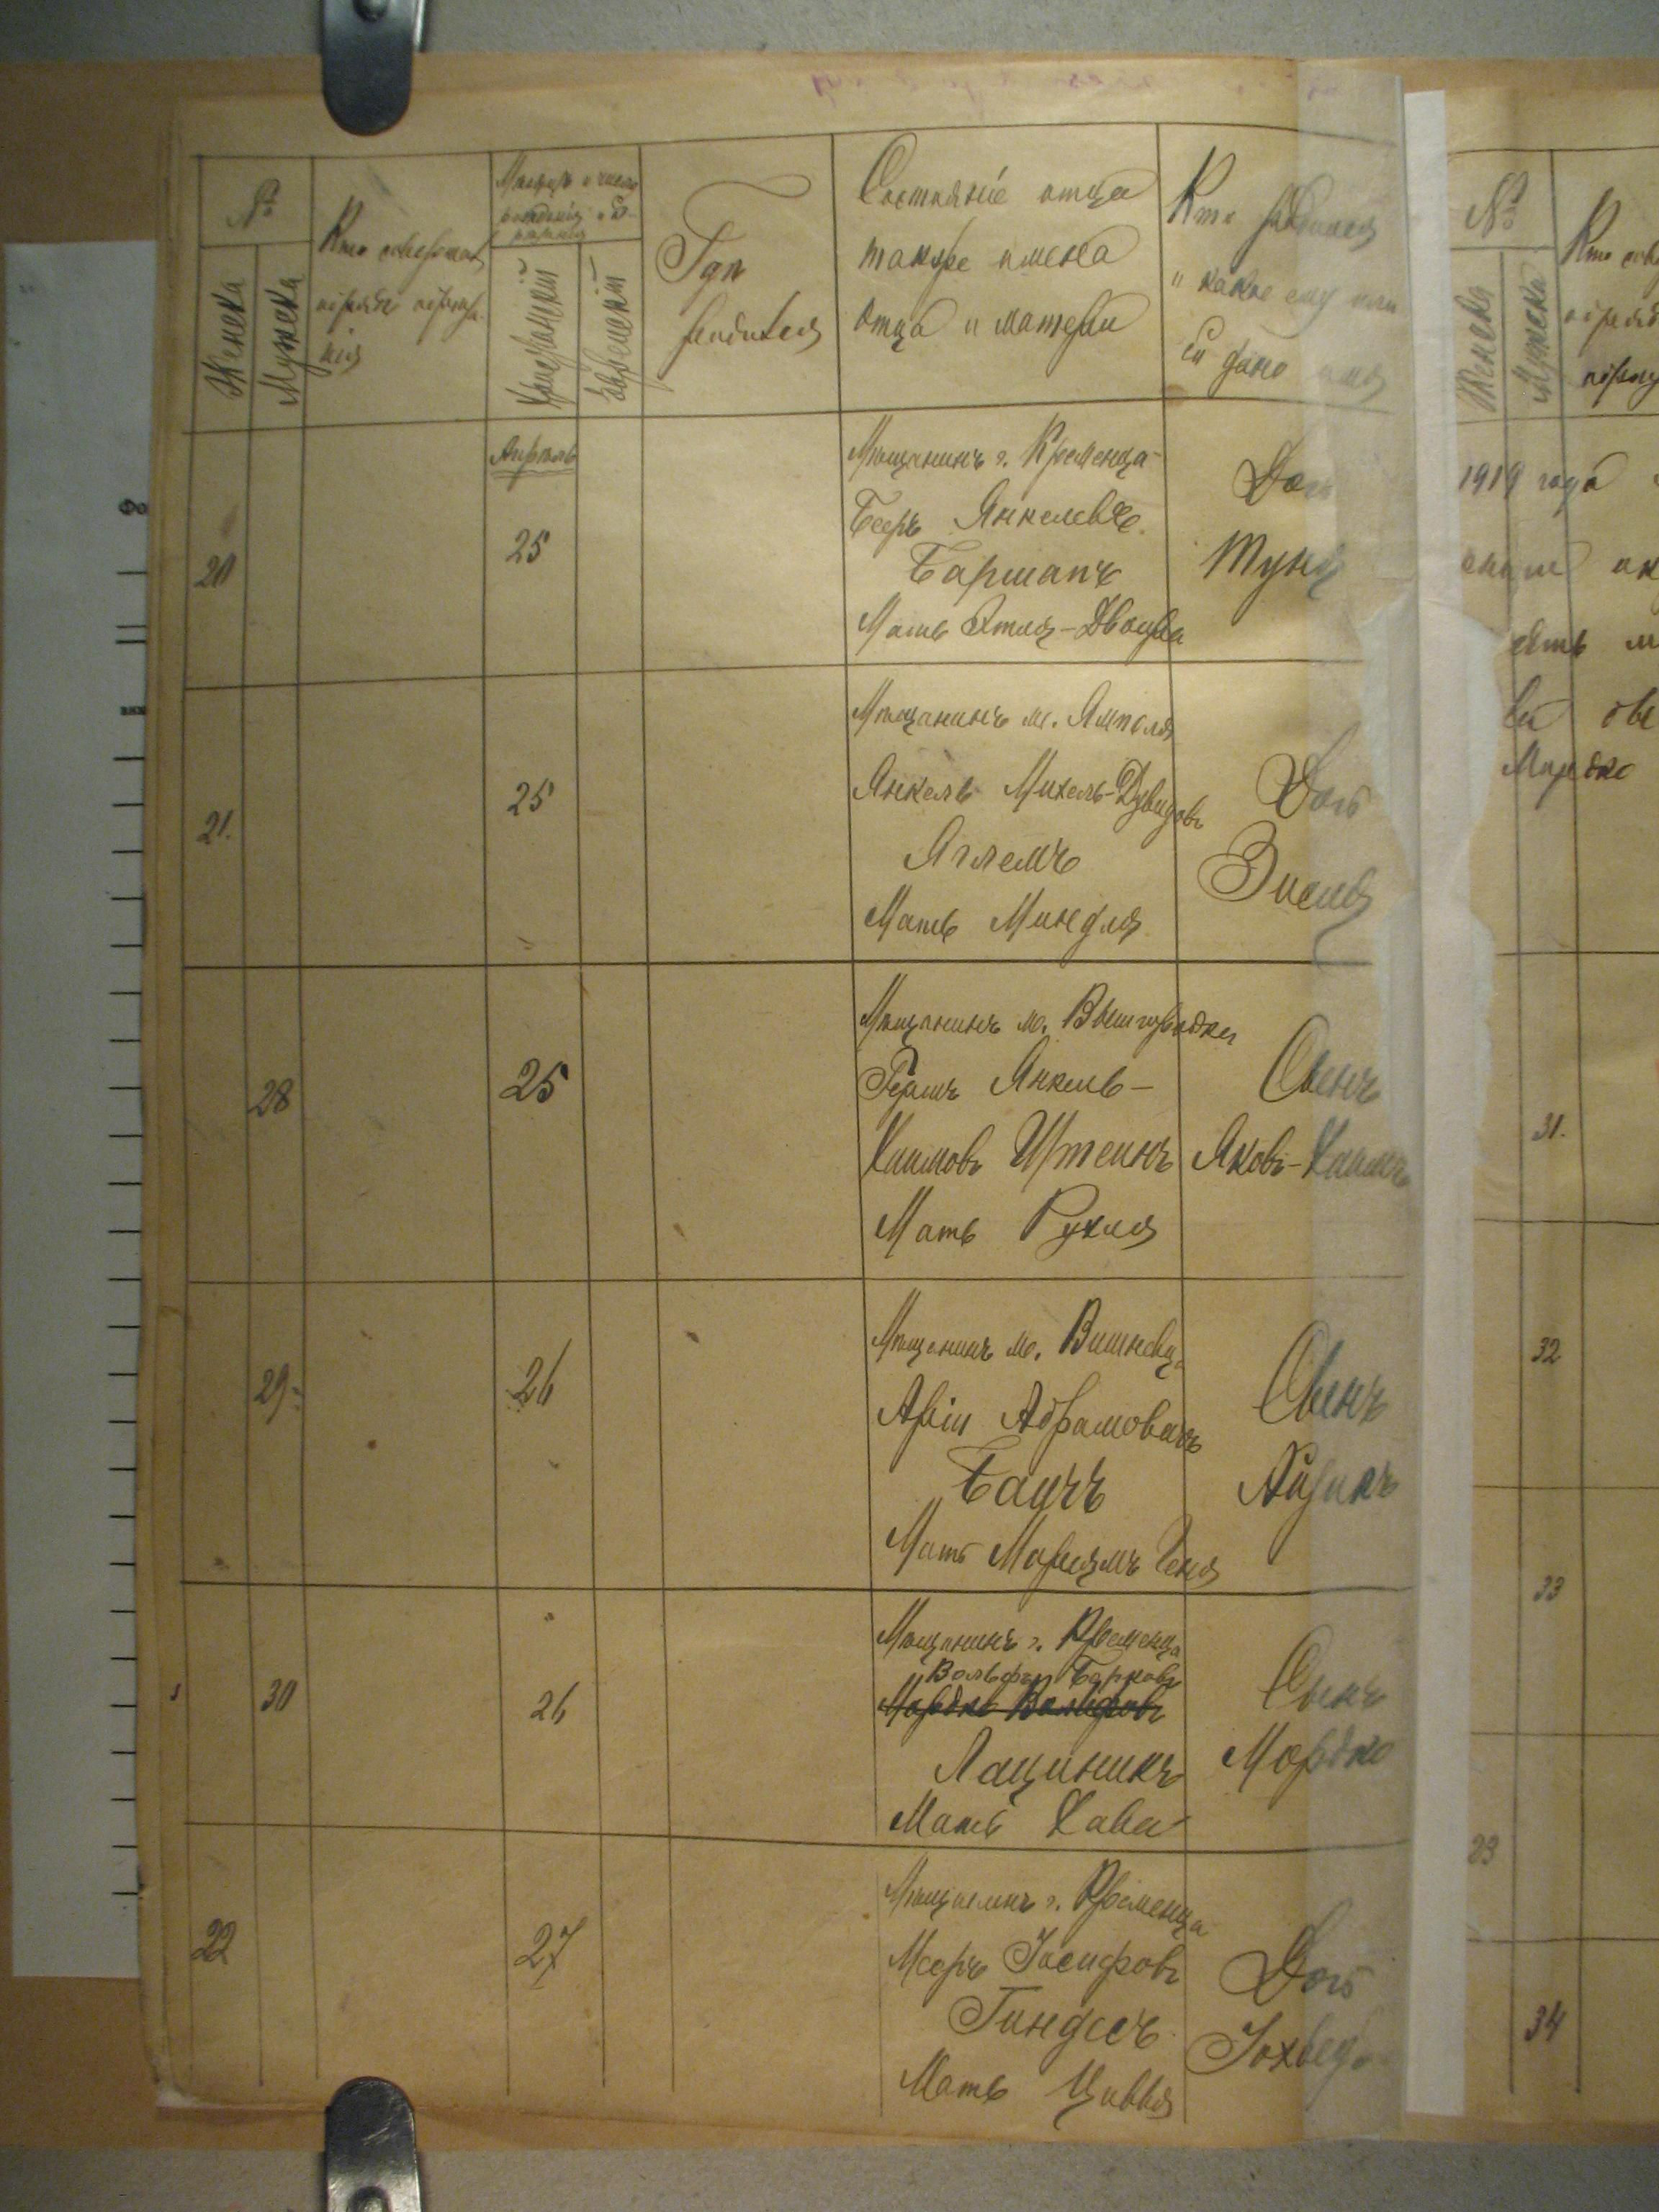 №
Женска
Мужска
Кто совершалъ
обрядъ обрѣза-
нія
Мѣсяцъ и число
рожденія и об-
рѣзанія
Христіанскій
Еврейскій
Гдѣ
родился
Состояніе отца
также имена
отца и матери
Кто родился
и какое ему или
ей дано имя
Апрѣль
20
25
Мѣщанинъ г. Кременца
Беръ Янкелевъ
Барманъ
Мать Этля-Двойра
Дочь
21.
25
Мѣщанинъ м. Ямполя
Янкель Михель-Дувидовъ
Мать Миндля
Дочь
Зисля
28
25
Мѣщанинъ м. Вышгородка
Гершъ Янкель-
Хаимовъ Штейнъ
Мать Рухля
Сынъ
Яковъ-Хаимъ
29
26
Мѣщанинъ м. Вишневца
Арій Абрамовичъ
Мать Маріямъ Геня
Сынъ
Айзикъ
30
26
Мѣщанинъ г. Кременца
Вольфъ Берковъ
Мордко Вольфовъ
Лациникъ
Мать Хава
Сынъ
Мордко
22
27
Мѣщанинъ г. Кременца
Мееръ Іосифовъ
Гиндесъ
Мать Цивья
Дочь
Іохведъ
№
Женска
Мужска
Кто
1919 года
Мордко
31.
32
33
23
34